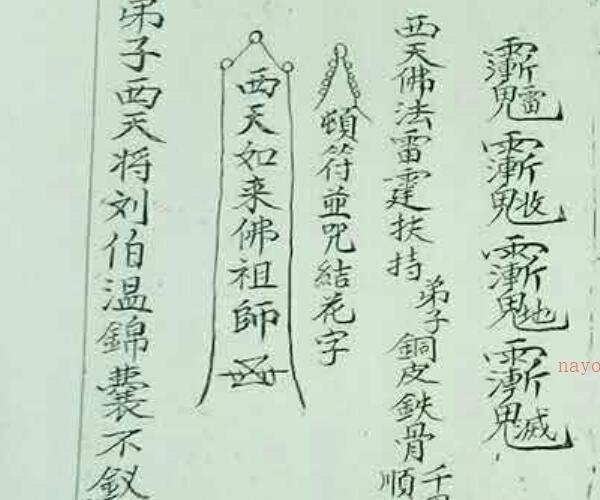 西天佛法雷霆扶持弟子銅皮鉄骨千順
頓符並咒結花字
西天如来佛祖師
弟子西天将刘伯温錦囊不釵
nayo